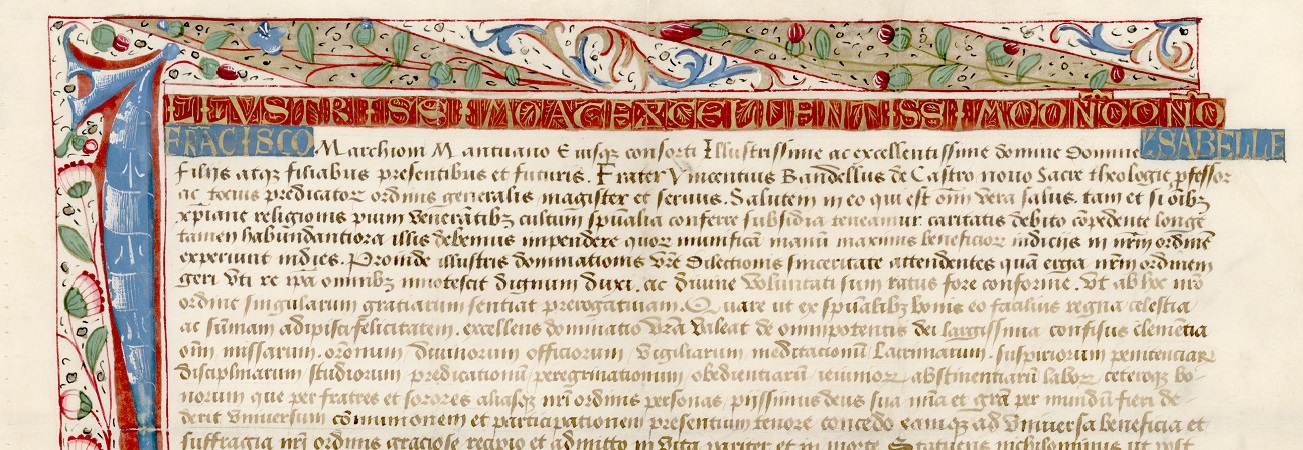 ILLUSTRISSIMO AC EXCELLENTISSIMO DÑO DÑO
FRACISCO Marchioni Mantuano Eiusq; consorti Illustrissime ac excellentissime domine Domine YSABELLE
Filijs atq; filiabus presentibus et futuris. Frater Vincentius Bandellus de Castro novo Sacre theologie ꝓfessor
ac tocius predicatoꝝ ordinis generalis magister et servus. Salutem in eo qui est oīm vera salus. tam et si oībꝫ
xp̄iane religionis pium venerātibꝫ cultum spūalia conferre subsidia teneamur caritatis debito cōpedente longe
tamen habundantiora illis debemus impendere quoꝝ munificā manū maximis beneficioꝝ indiciis in nr̄m ordinē
experiunt indies. Proinde illustris dominationis vr̄e Dilectionis sinceritate attendentes quā erga nr̄m ordinem
geri vti re ip̄a omnibꝫ innotescit dignum duxi. ac divine voluntati sum ratus fore conforme. Vt ab hoc nr̄o
ordine singularum gratiarum sentiat prerogativam. Quare ut ex spūalibꝫ bonis eo facilius regna celestia
ac sūmam adipisci felicitatem. excellens dominatio vr̄a valeat de omnipotentis dei largissima confisus clemētia
oīm missarum. or̄onum divinorum officiorum vigiliarum meditationū Lacrimarum. suspiriorum penitenciaꝝ
disciplinarum studiorum predicationū peregrinationum obedientiarū ieiunioꝝ abstinentiarū laboꝝ ceteroqꝫ bo
norum que per fratres et sorores aliasqꝫ nr̄i ordinis personas pijssimus deus sua mīa et grā per mundū fieri de
derit vniversum cōmunionem et participationem presentium tenore concedo eamqꝫ ad vniversa beneficia et
suffragia nr̄i ordinis graciose recipio et admitto in vita pariter et in morte. Statuens nichilominus ut post